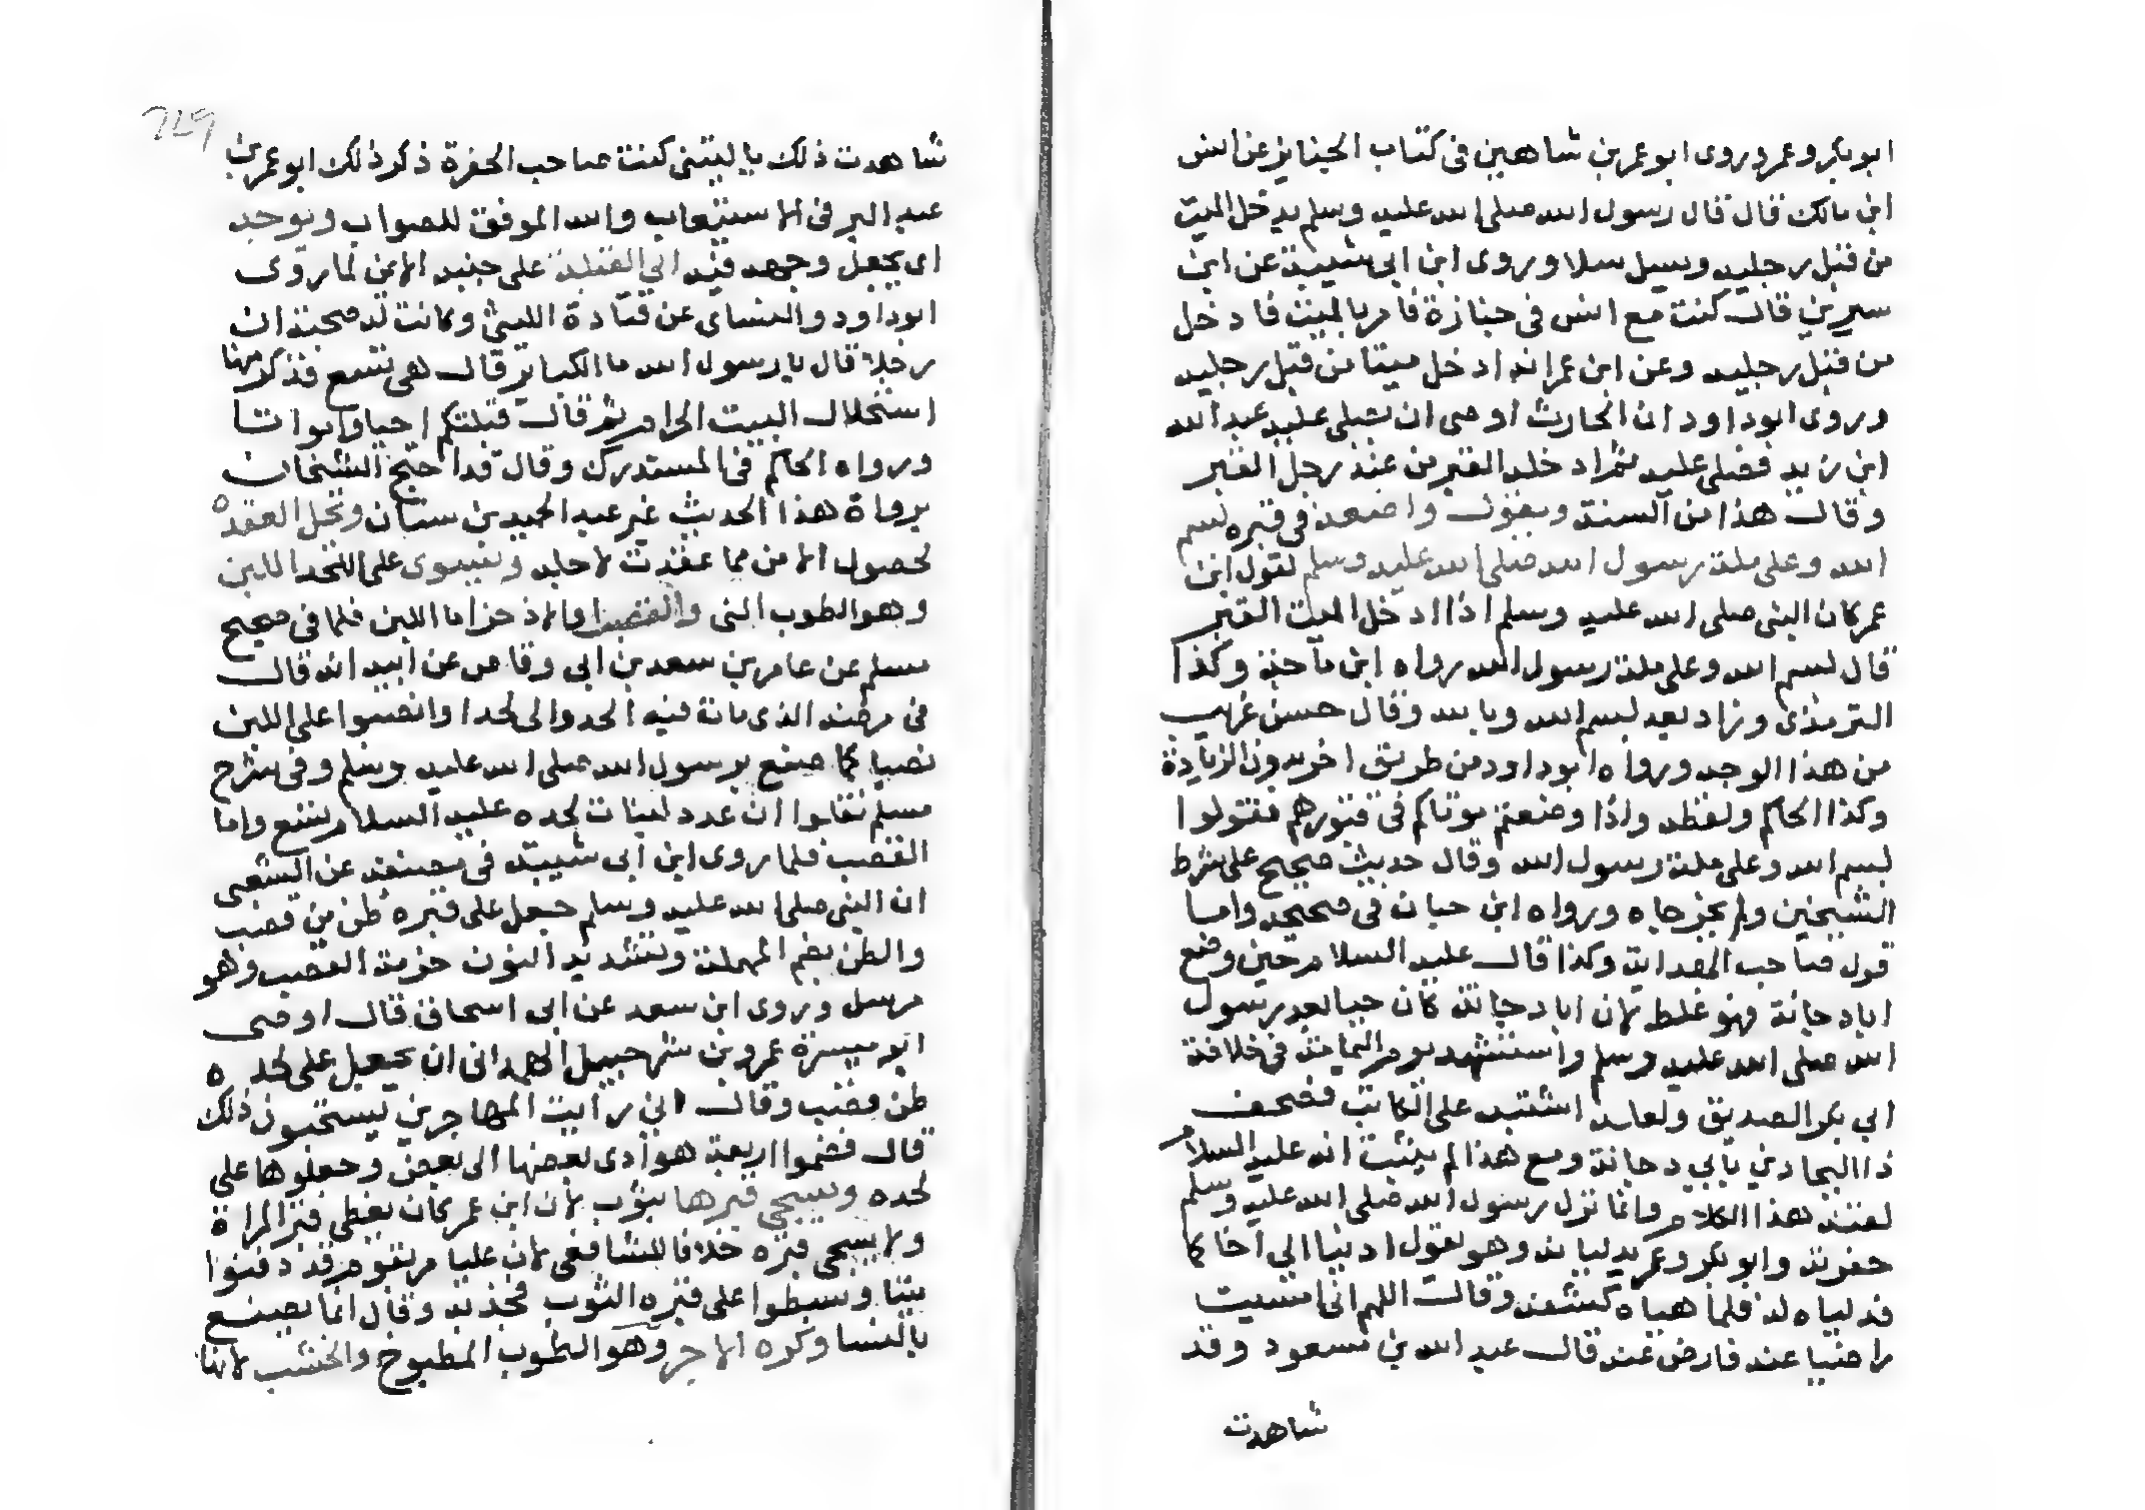 ابو بكر وعمر وروى ابو عمر بن شاهين فى كتاب الجنايز عن انس
ابن مالك قال قال رسول الله صلى الله عليه وسلم يدخل الميت
من قبل رجليه ويسل سلا وروى ابن ابى شيبة عن ابن
سيرين قال كنت مع انس فى جنازة فامر بالميت فادخل
من قبل رجليه وعن ابن عمر انه ادخل ميتا من قبل رجليه
وروى ابو داود ان الحارث اوصى ان يصلى عليه عبد الله
ابن زيد فصلى عليه ثم ادخله القبر من عند رجل القبر
وقال هذا من السنة ويقول واضعه فى قبره بسم
الله وعلى ملة رسول الله صلى الله عليه وسلم لقول ابن
عمر كان النبى صلى الله عليه وسلم اذا ادخل الميت القبر
قال بسم الله وعلى ملة رسول الله رواه ابن ماجة وكذا
الترمذى وزاد بعد بسم الله وبالله وقال حسن غريب
من هذا الوجه ورواه ابو داود من طريق اخر بدون الزيادة
وكذا الحاكم ولفظه واذا وضعتم موتاكم فى قبورهم فقولوا
بسم الله وعلى ملة رسول الله وقال حديث صحيح على شرط
الشيخين ولم يخرجاه ورواه ابن حبان فى صحيحه واما
قول صاحب الهداية وكذا قال عليه السلام حين وضع
ابا دجانة فهو غلط لان ابا دجانة كان حيا بعد رسول
الله صلى الله عليه وسلم واستشهد يوم اليمامة فى خلافة
ابى بكر الصديق ولعله اشتبه على الكاتب فصحف
ذا البجادين بابى دجانة ومع هذا لم يثبت انه عليه السلام
لقنه بهذا الكلام وانما نزل رسول الله صلى الله عليه وسلم
حفرته وابو بكر وعمر يدليانه وهو يقول ادنيا الى اخاكما
فدلياه له فلما هياه لشقه وقال اللهم انى امسيت
راضيا عنه فارض عنه قال عبد الله بن مسعود وقد
شاهدت
شاهدت ذلك ياليتنى كنت صاحب الحفرة ذكر ذلك ابو عمر بن
عبد البر فى الاستيعاب والله الموفق للصواب ويوجه
اى يجعل وجهه فيه الى القبلة على جنبه الايمن لما روى
ابو داود والنساى عن قتادة الليثى وكانت له صحبة ان
رجلا قال يا رسول الله ما الكباير قال هى تسع فذكر منها
استحلال البيت الحرام ثم قال قبلتكم احيا وامواتا
ورواه الحاكم فى المستدرك وقال قد احتج الشيخان
برواة هذا الحديث غير عبد الحميد بن سنان وتحل العقدة
لحصول الامن مما عقدت لاجله ويسوى على اللحد اللبن
وهو الطوب النى والقصب او الاذخر اما اللبن فلما فى صحيح
مسلم عن عامر بن سعد بن ابى وقاص عن ابيه انه قال
فى مرضه الذى مات فيه الحدوا لى لحدا وانصبوا على اللبن
نصبا كما صنع برسول الله صلى الله عليه وسلم وفى شرح
مسلم نقلوا ان عدد لبنات لحده عليه السلام تسع واما
القصب فلما روى ابن ابى شيبة فى مصنفه عن الشعبى
ان النبى صلى الله عليه وسلم جعل على قبره طن من قصب
والطن بضم المهملة وتشديد النون حزمة القصب وهو
مرسل وروى ابن سعد عن ابى اسحاق قال اوصى
ابو ميسرة عمرو بن شرحبيل الهمدانى ان يجعل على لحده
طن قصب وقال انى رايت المهاجرين يستحبون ذلك
قال فضموا اربعة هوادى بعضها الى بعض وجعلوها على
لحده ويسجى قبرها بثوب لان ابن عمر كان يغطى قبر المراة
ولا يسجى قبره خلافا للشافعى لان عليا مر بقوم قد دفنوا
ميتا وبسطوا على قبره الثوب فجذبه وقال انما يصنع
بالنسا وكره الاجر وهو الطوب المطبوخ والخشب لانها